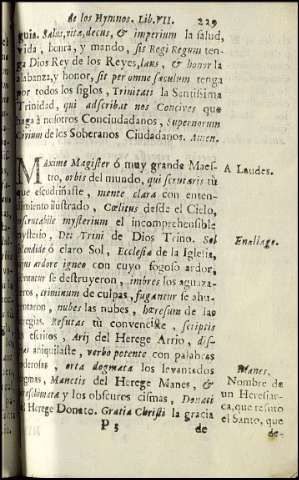 de los Hymnos. Lib. VII. 229
guia. Salus, vita, decus, & imperium la salud,
vida, honra, y mando, sis Regi Regum ten-
ga Dios Rey de los Reyes, laus, & honor la
alabanza, y honor, sit per omne sæculum tenga
por todos los siglos, Trinitati la Santissima
Trinidad, qui adscribat nos Concives que
haga à nosotros Conciudadanos, Supernorum
Civium de los Soberanos Ciudadanos. Amen.
MAxime Magister ó muy grande Maes- A Laudes.
tro, orbis del mundo, qui scrutaris tù
que escudiñaste, mente clara con enten-
dimiento ilustrado, Cœlitus desde el Cielo,
inscrutabile mysterium el incomprehensible
mysterio, Dei Trini de Dios Trino. Sol
splendide ó claro Sol, Ecclesiæ de la Iglesia, Enallage.
cujus ardore igneo con cuyo fogoso ardor,
se destruyeron, imbres los aguaza-
zeros, criminum de culpas, fugantur se ahu-
yentaron, nubes las nubes, hæresum de las
heregias. Refutas tù convenciste, scriptis
escritos, Arij del Herege Arrio, dis-
aniquilaste, verbo potente con palabras
poderosas, orta dogmata los levantados Manes.
dogmas, Manetis del Herege Manes, & Nombre de
schismata y los obscures cismas, Donati un Heresiar-
del Herege Donato. Gratia Christi la gracia ca, que refutò
P 5 de el Santo, que
de-